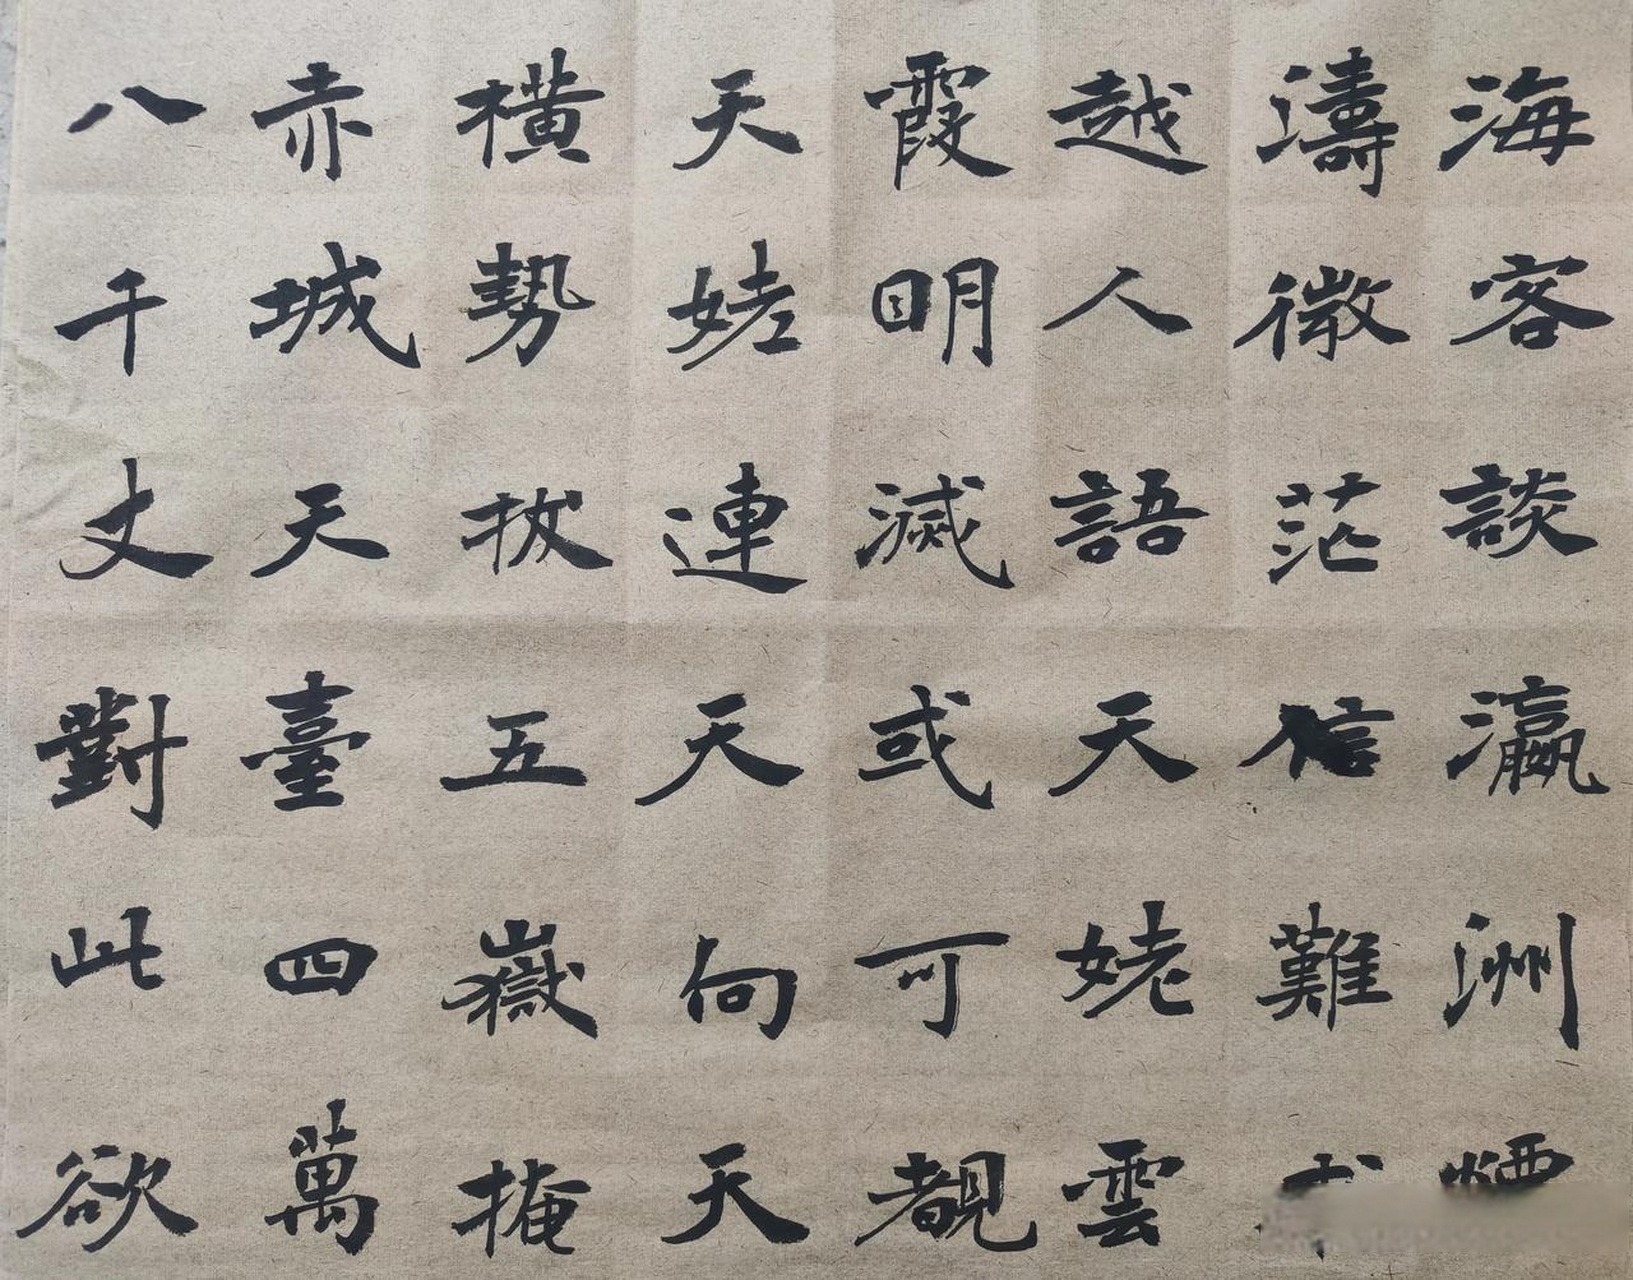 海客談瀛洲煙
濤微茫信難
越人語天姥雲
霞明滅或可覩
天姥連天向天
橫勢拔五嶽掩
赤城天臺四萬
八千丈對此欲